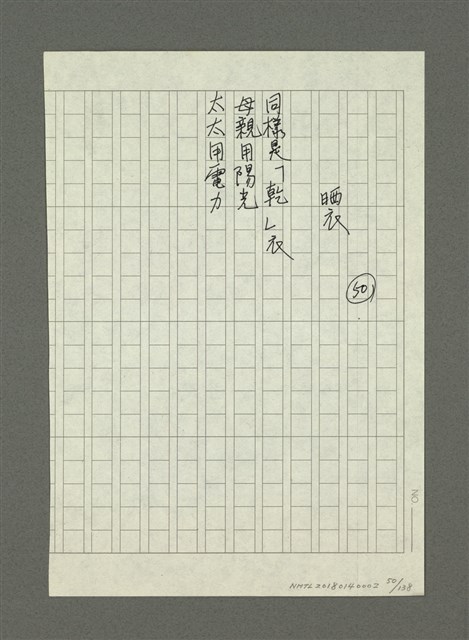 晒衣
㊿
同樣是「乾」衣
母親用陽光
太太用電力
NO
NMTL20180140002 50/138